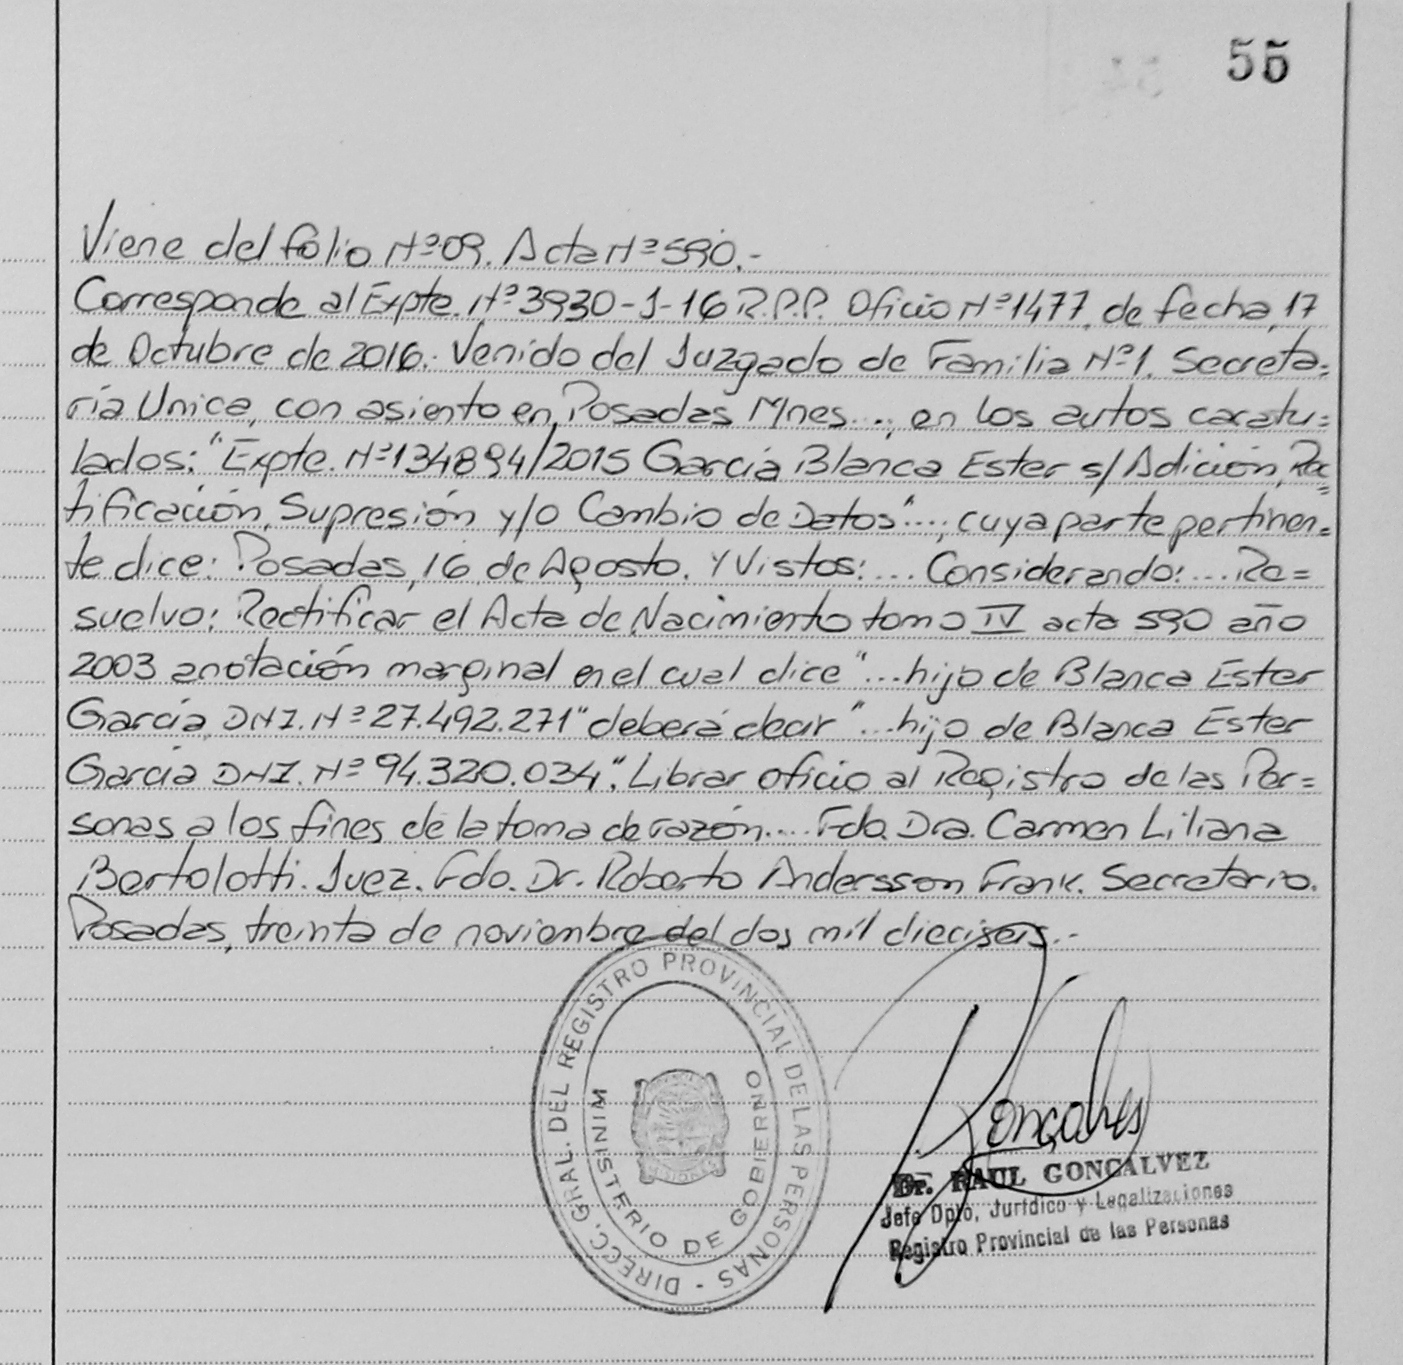 55
Viene del folio Nº 09. Acta Nº 590.-
Corresponde al Expte. Nº 3930-J-16 R.P.P. Oficio Nº 1477, de fecha, 17
de Octubre de 2016. Venido del Juzgado de Familia Nº 1. Secreta=
ría Unica, con asiento en Posadas Mnes..., en los autos caratu=
lados: "Expte. Nº 134894/2015 García Blanca Ester s/ Adición, Rec
tificación, Supresión y/o Cambio de Datos"..., cuya parte pertinen=
te dice: Posadas, 16 de Agosto. Y Vistos:... Considerando:... Re=
suelvo: Rectificar el Acta de Nacimiento tomo IV acta 590 año
2003 anotación marginal en el cual dice "...hijo de Blanca Ester
García DNI. Nº 27.492.271" deberá decir "...hijo de Blanca Ester
García DNI. Nº 94.320.034". Librar oficio al Registro de las Per=
sonas a los fines de la toma de razón.... Fdo. Dra. Carmen Liliana
Bertolotti. Juez. Fdo. Dr. Roberto Andersson Frank. Secretario.
Posadas, treinta de noviembre del dos mil dieciseis.-
DIRECC. GRAL. DEL REGISTRO PROVINCIAL DE LAS PERSONAS -
MINISTERIO DE GOBIERNO
MISIONES
Gonçalves
Dr. RAUL GONCALVEZ
Jefe Dpto. Jurídico y Legalizaciones
Registro Provincial de las Personas